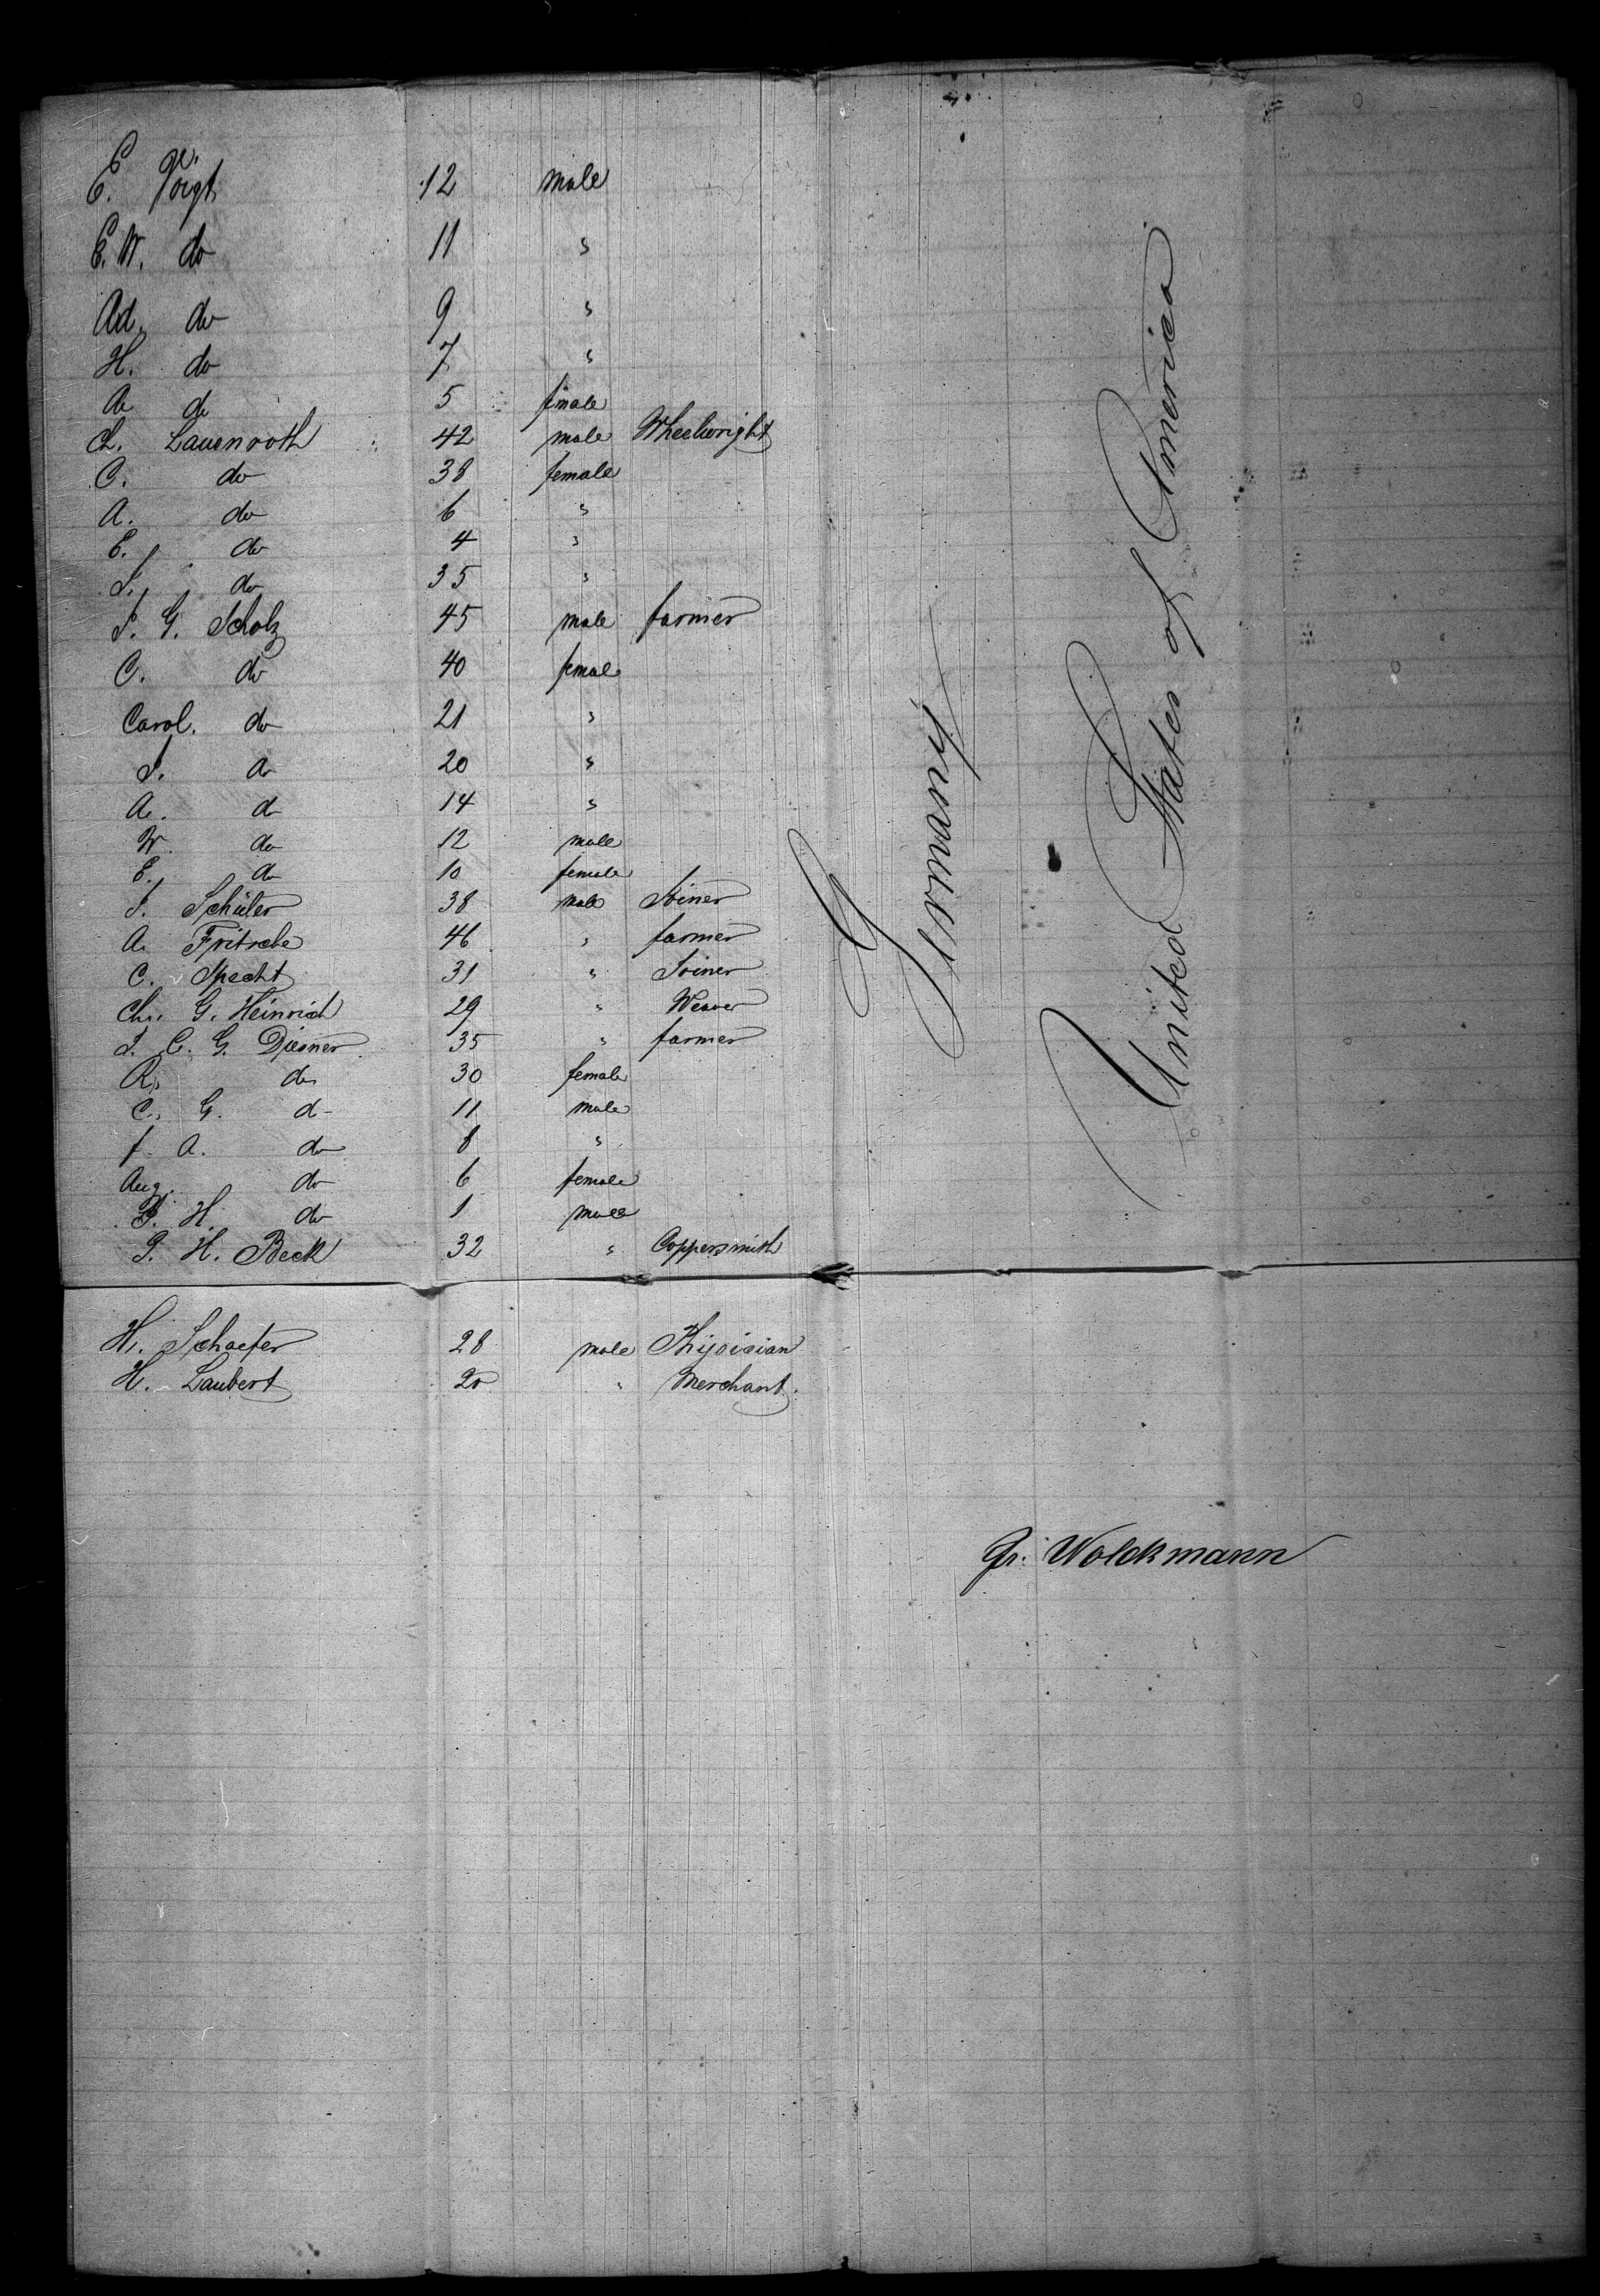 E. Voigt 12 male
E. W. do 11 "
Ad. do 9 "
H. do 7 "
A. do 5 female
Ch. Lauenroth 42 male Wheelwright
C. do 38 female
A. do 6 "
E. do 4 "
J. do 35 "
J. G. Scholz 45 male farmer
C. do 40 female
Carol. do 21 "
J. do 20 "
A. do 14 "
W. do 12 male
E. do 10 female
J. Schüler 38 male Joiner
A. Fritsche 46 " farmer
C. Specht 31 " Joiner
Chr. G. Heinrich 29 " Weaver
J. C. G. Diesner 35 " farmer
R. do 30 female
C. G. do 11 male
f. A. do 8 "
Aug. do 6 female
H. do 1 male
J. H. Beck 32 " Coppersmith
H. Schaefer 28 male Physician
H. Laubert 20 " Merchant.
Germany
United States of America
Fr. Wolckmann